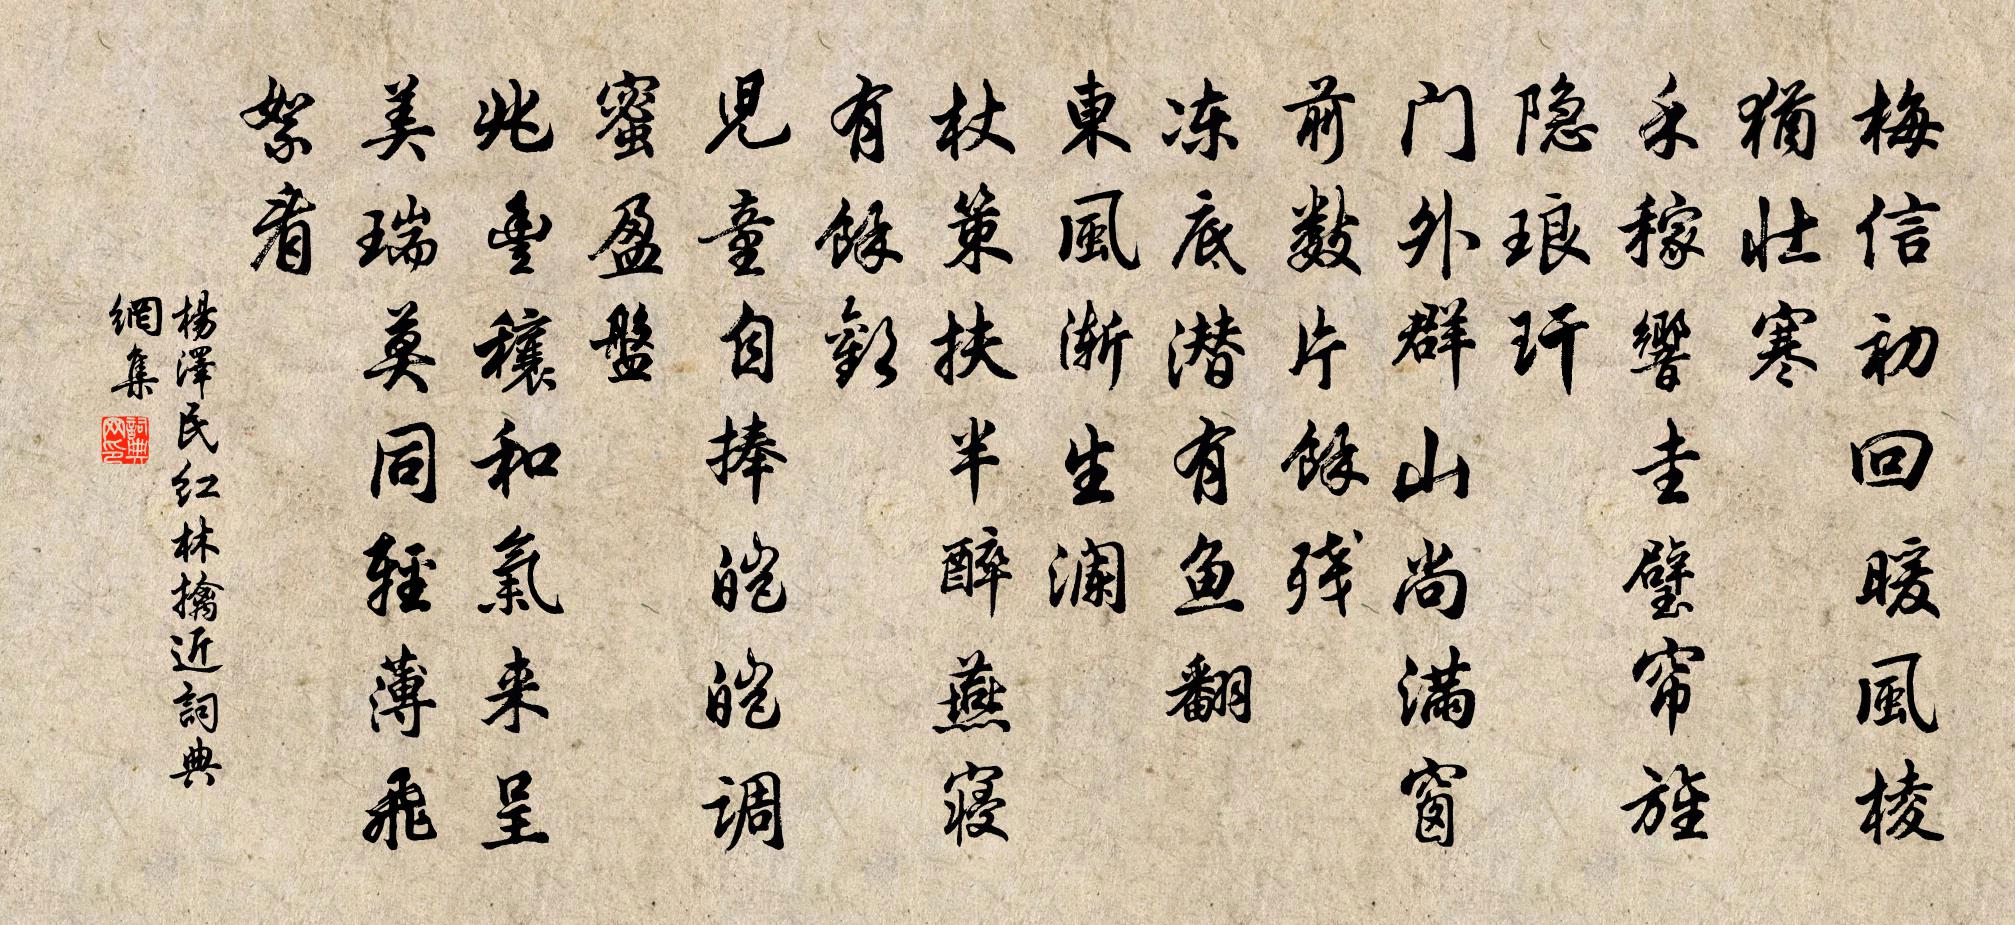 梅信初回暖風棱
猶壯寒
禾稼響圭璧帘旌
隐琅玕
门外群山尚滿窗
前數片餘残
冻底潜有鱼翻
東風渐生澜
杖策扶半醉燕寝
有餘歡
児童自捧皑皑调
蜜盈盤
兆豊穰和氣来呈
美瑞莫同輕薄飛
絮看
楊澤民红林擒近詞典
網集
詞典
网印